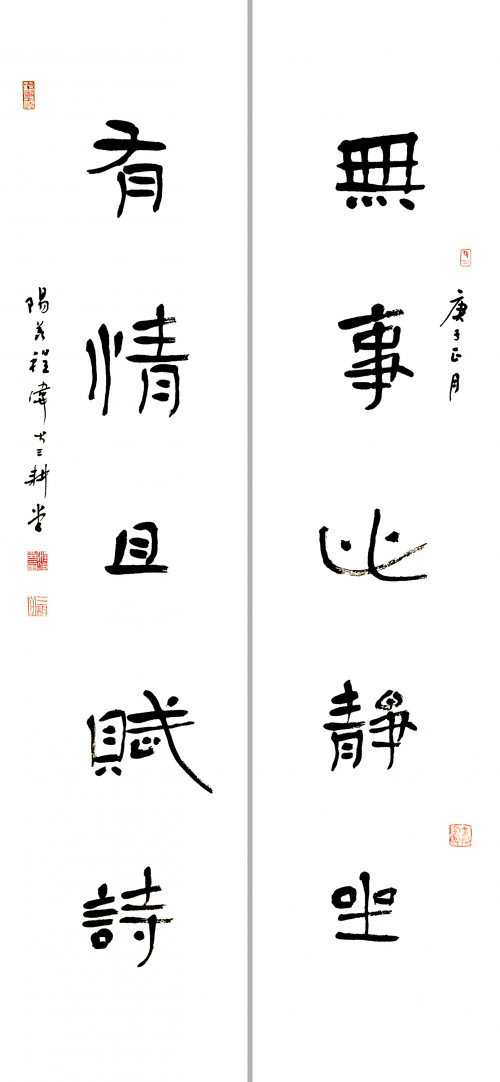 庚子正月
無事此靜坐
有情且賦詩
陽羨程偉于三耕堂